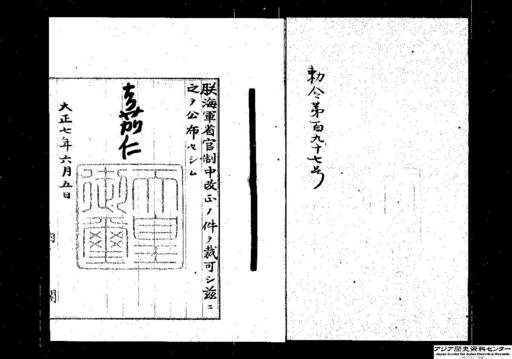 勅令第百九十七号
朕海軍省官制中改正ノ件ヲ裁可シ茲ニ
之ヲ公布セシム
嘉仁
天皇御璽
大正七年六月五日
内閣
アジア歴史資料センター
Japan Center for Asian Historical Records